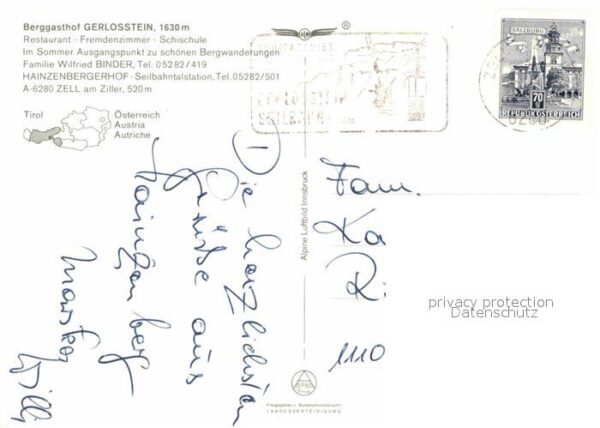 Berggasthof GERLOSSTEIN, 1630 m
Restaurant · Fremdenzimmer · Schischule
Im Sommer Ausgangspunkt zu schönen Bergwanderungen
Familie Wilfried BINDER, Tel. 05282/419
HAINZENBERGERHOF - Seilbahntalstation, Tel. 05282/501
A-6280 ZELL am Ziller, 520 m
Tirol
Österreich
Austria
Autriche
®
GERLOSSTEIN
SEILBAHN
6280
SALZBURG
70
REPUBLIK ÖSTERREICH
Die herzlichsten
Grüße aus
Hainzenberg
Willi
Alpine Luftbild Innsbruck
Fam.
Ka
R
1110
privacy protection
Datenschutz
Freigegeben v. Bundesministerium f.
LANDESVERTEIDIGUNG